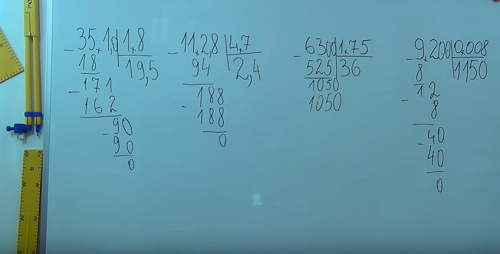 35,1,0 1,8
18 19,5
171
162
90
90
0
11,2,8 4,7
94 2,4
188
188
0
6300 1,75
525 36
1050
1050
9,200 0,008
8 1150
12
8
40
40
0